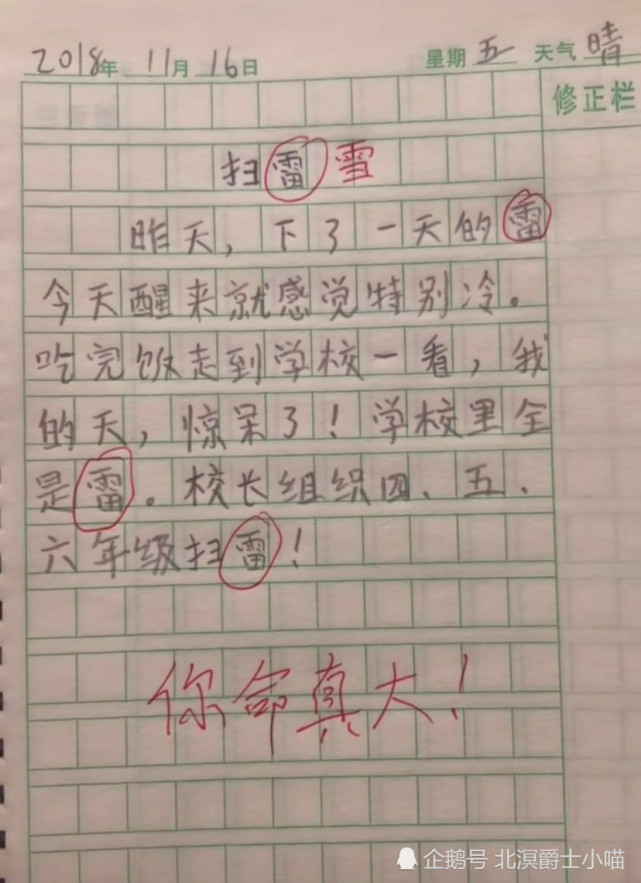 2018年 11月 16日 星期 五 天气 晴
修正栏
扫雷 雪
昨天，下了一天的雷
今天醒来就感觉特别冷。
吃完饭走到学校一看，我
的天，惊呆了！学校里全
是雷。校长组织四、五、
六年级扫雷！
你命真大！
企鹅号 北溟爵士小喵